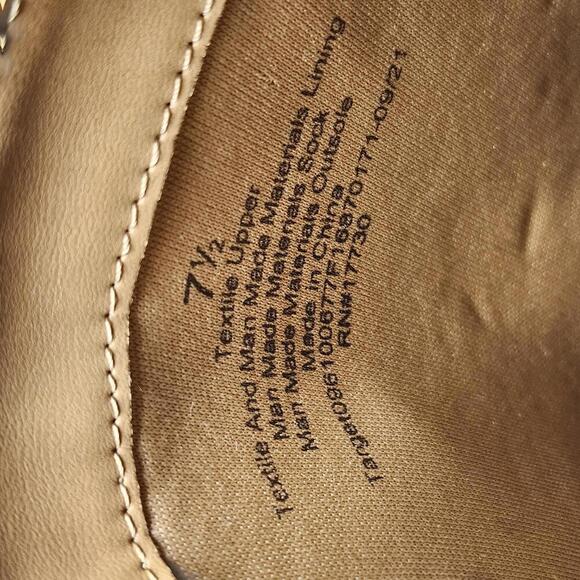 7½
Textile Upper
Textile And Man Made Materials Lining
Man Made Materials Sock
Man Made Materials Outsole
Made in China
RN#17730
Target096100677F16970171-09/21